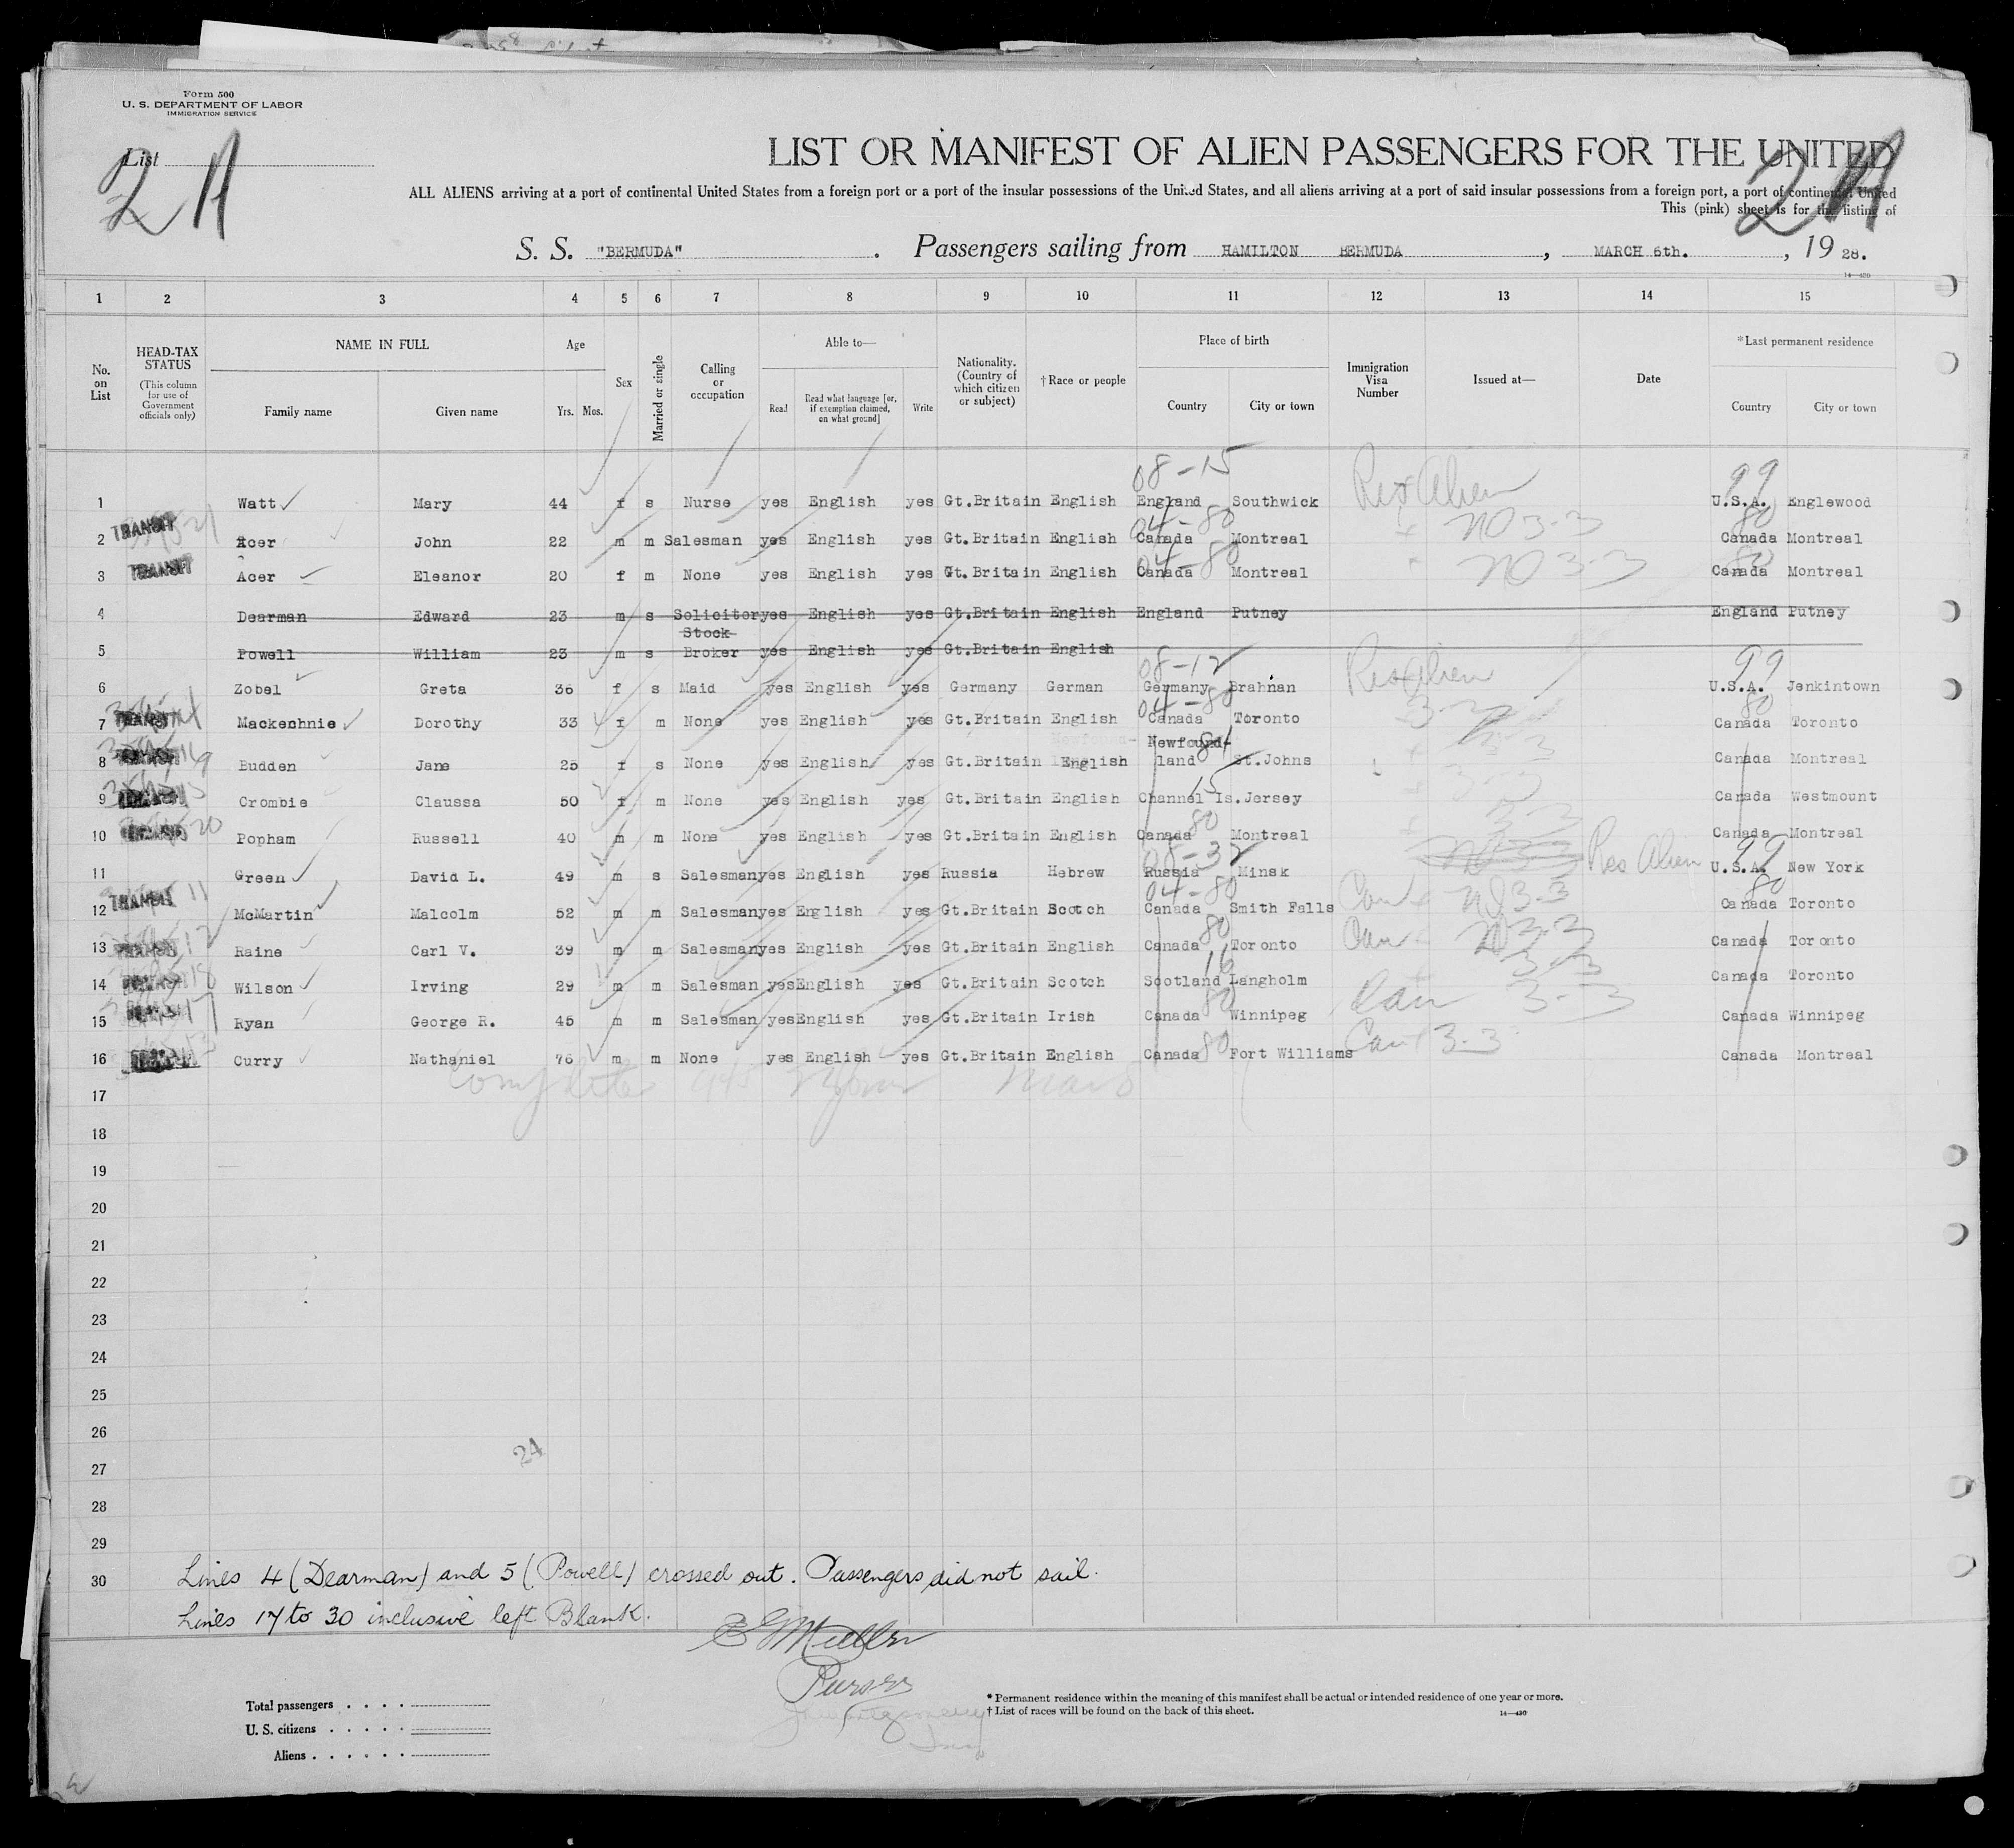 Form 500
U. S. DEPARTMENT OF LABOR
IMMIGRATION SERVICE
List
2 A
LIST OR MANIFEST OF ALIEN PASSENGERS FOR THE UNITED
2 A
ALL ALIENS arriving at a port of continental United States from a foreign port or a port of the insular possessions of the United States, and all aliens arriving at a port of said insular possessions from a foreign port, a port of continental United
This (pink) sheet is for the listing of
S. S. "BERMUDA". Passengers sailing from HAMILTON BERMUDA, MARCH 6th., 19 28.
14—430
1 2 3 4 5 6 7 8 9 10 11 12 13 14 15
No. on List
HEAD-TAX STATUS
(This column for use of Government officials only)
NAME IN FULL
Family name Given name
Age
Yrs. Mos.
Sex
Married or single
Calling or occupation
Able to—
Read Read what language [or, if exemption claimed, on what ground] Write
Nationality. (Country of which citizen or subject)
† Race or people
Place of birth
Country City or town
Immigration Visa Number
Issued at—
Date
* Last permanent residence
Country City or town
08-15 99
1 Watt Mary 44 f s Nurse yes English yes Gt.Britain English England Southwick Res Alien U.S.A. Englewood
04-80 80
2 TRANSIT Acer John 22 m m Salesman yes English yes Gt.Britain English Canada Montreal NO 3-3 Canada Montreal
04-80 80
3 TRANSIT Acer Eleanor 20 f m None yes English yes Gt.Britain English Canada Montreal NO 3-3 Canada Montreal
4 Dearman Edward 23 m s Solicitor yes English yes Gt.Britain English England Putney England Putney
Stock
5 Powell William 23 m s Broker yes English yes Gt.Britain English
08-12 99
6 Zobel Greta 36 f s Maid yes English yes Germany German Germany Brahnan Res Alien U.S.A. Jenkintown
04-80 80
7 TRANSIT Mackenhnie Dorothy 33 f m None yes English yes Gt.Britain English Canada Toronto 3-3 Canada Toronto
Newfound-
8 Budden Jane 25 f s None yes English yes Gt.Britain English land St.Johns 3-3 Canada Montreal
15
9 Crombie Claussa 50 f m None yes English yes Gt.Britain English Channel Is. Jersey 3-3 Canada Westmount
80
10 Popham Russell 40 m m None yes English yes Gt.Britain English Canada Montreal 3-3 Canada Montreal
08-32 99
11 Green David L. 49 m s Salesman yes English yes Russia Hebrew Russia Minsk Res Alien U.S.A. New York
04-80 80
12 TRANSIT McMartin Malcolm 52 m m Salesman yes English yes Gt.Britain Scotch Canada Smith Falls Can NO 3-3 Canada Toronto
80
13 TRANSIT Raine Carl V. 39 m m Salesman yes English yes Gt.Britain English Canada Toronto Can NO 3-3 Canada Toronto
16
14 Wilson Irving 29 m m Salesman yes English yes Gt.Britain Scotch Scotland Langholm 3-3 Canada Toronto
80
15 Ryan George R. 45 m m Salesman yes English yes Gt.Britain Irish Canada Winnipeg Can 3-3 Canada Winnipeg
16 Curry Nathaniel 76 m m None yes English yes Gt.Britain English Canada 80 Fort Williams Can 3-3 Canada Montreal
17
18
19
20
21
22
23
24
25
26
27
24
28
29
30
Lines 4 (Dearman) and 5 (Powell) crossed out. Passengers did not sail.
Lines 17 to 30 inclusive left Blank.
Purser
Total passengers
U. S. citizens
Aliens
* Permanent residence within the meaning of this manifest shall be actual or intended residence of one year or more.
† List of races will be found on the back of this sheet.
14—430